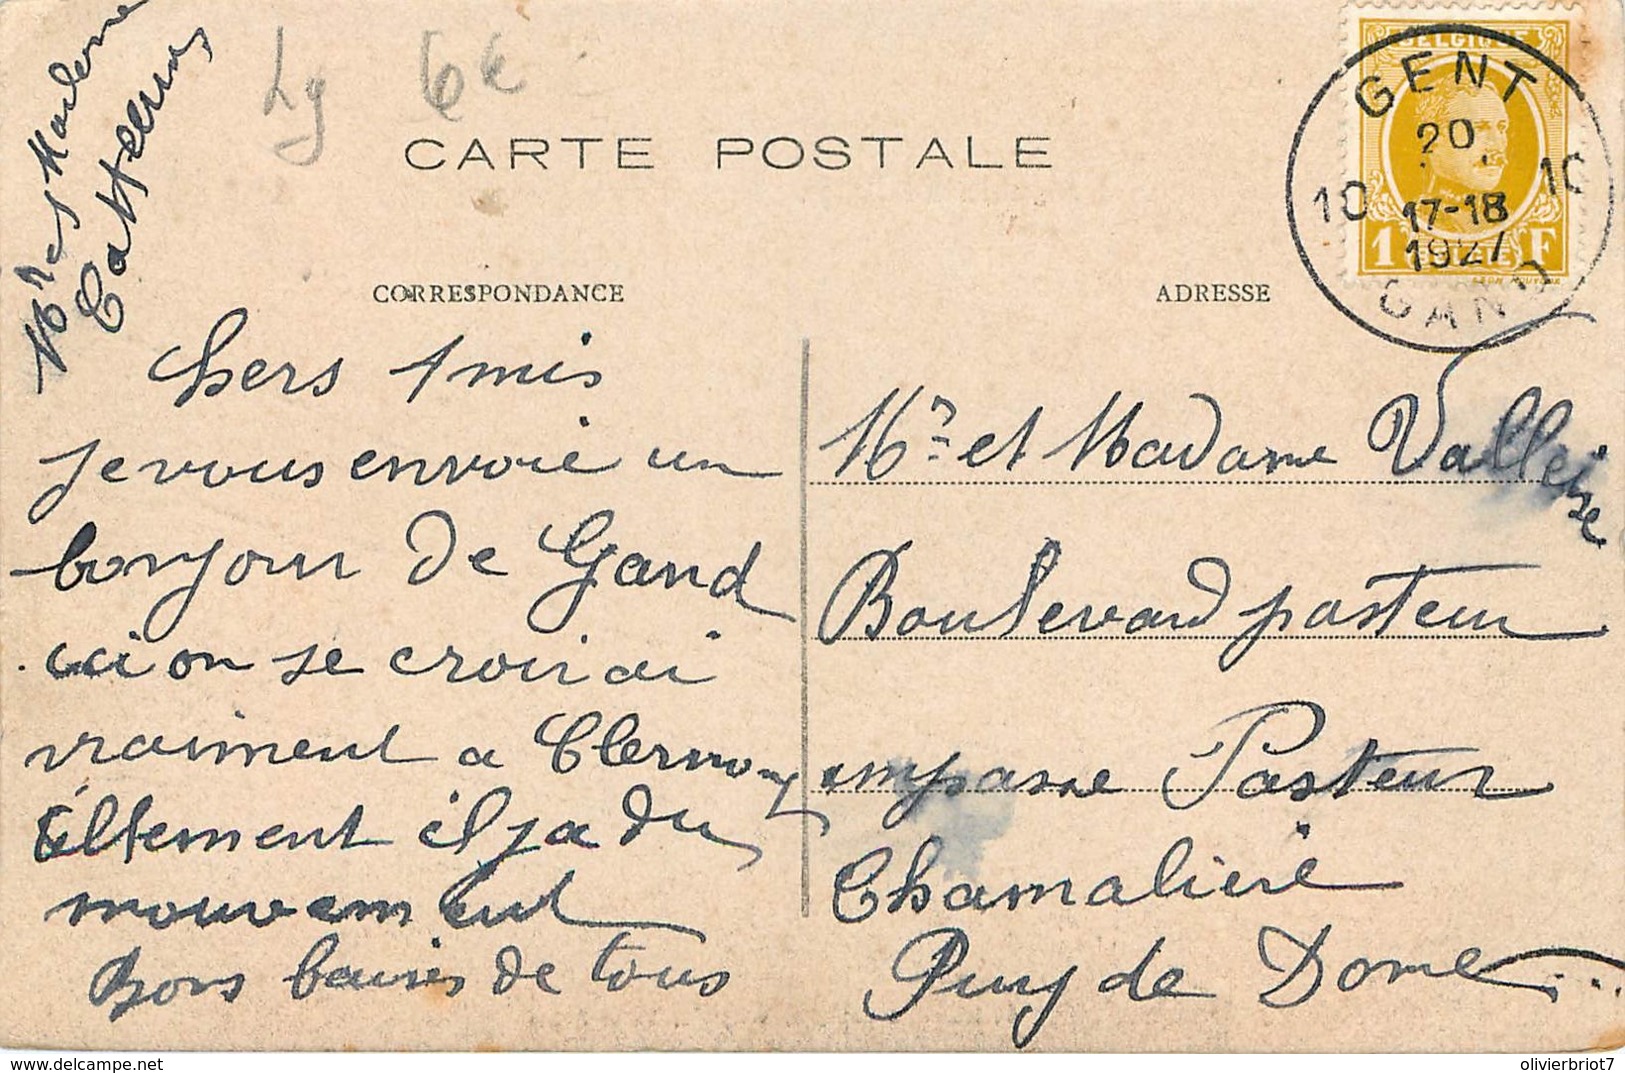 Mr et Madame
Lg 6€
CARTE POSTALE
CORRESPONDANCE
ADRESSE
BELGIQUE
GENT
20
10 10
17-18
1927
GAND
1 F
BELGIE
Chers Amis
je vous envoie un
bonjour de Gand
ici on se croirai
vraiment a Clermont
tellement il ja du
mouvement
Bons baisers de tous
Mr et Madame Valleise
Boulevard pasteur
impasse Pasteur
Chamalière
Puy de Dome
olivierbriot7